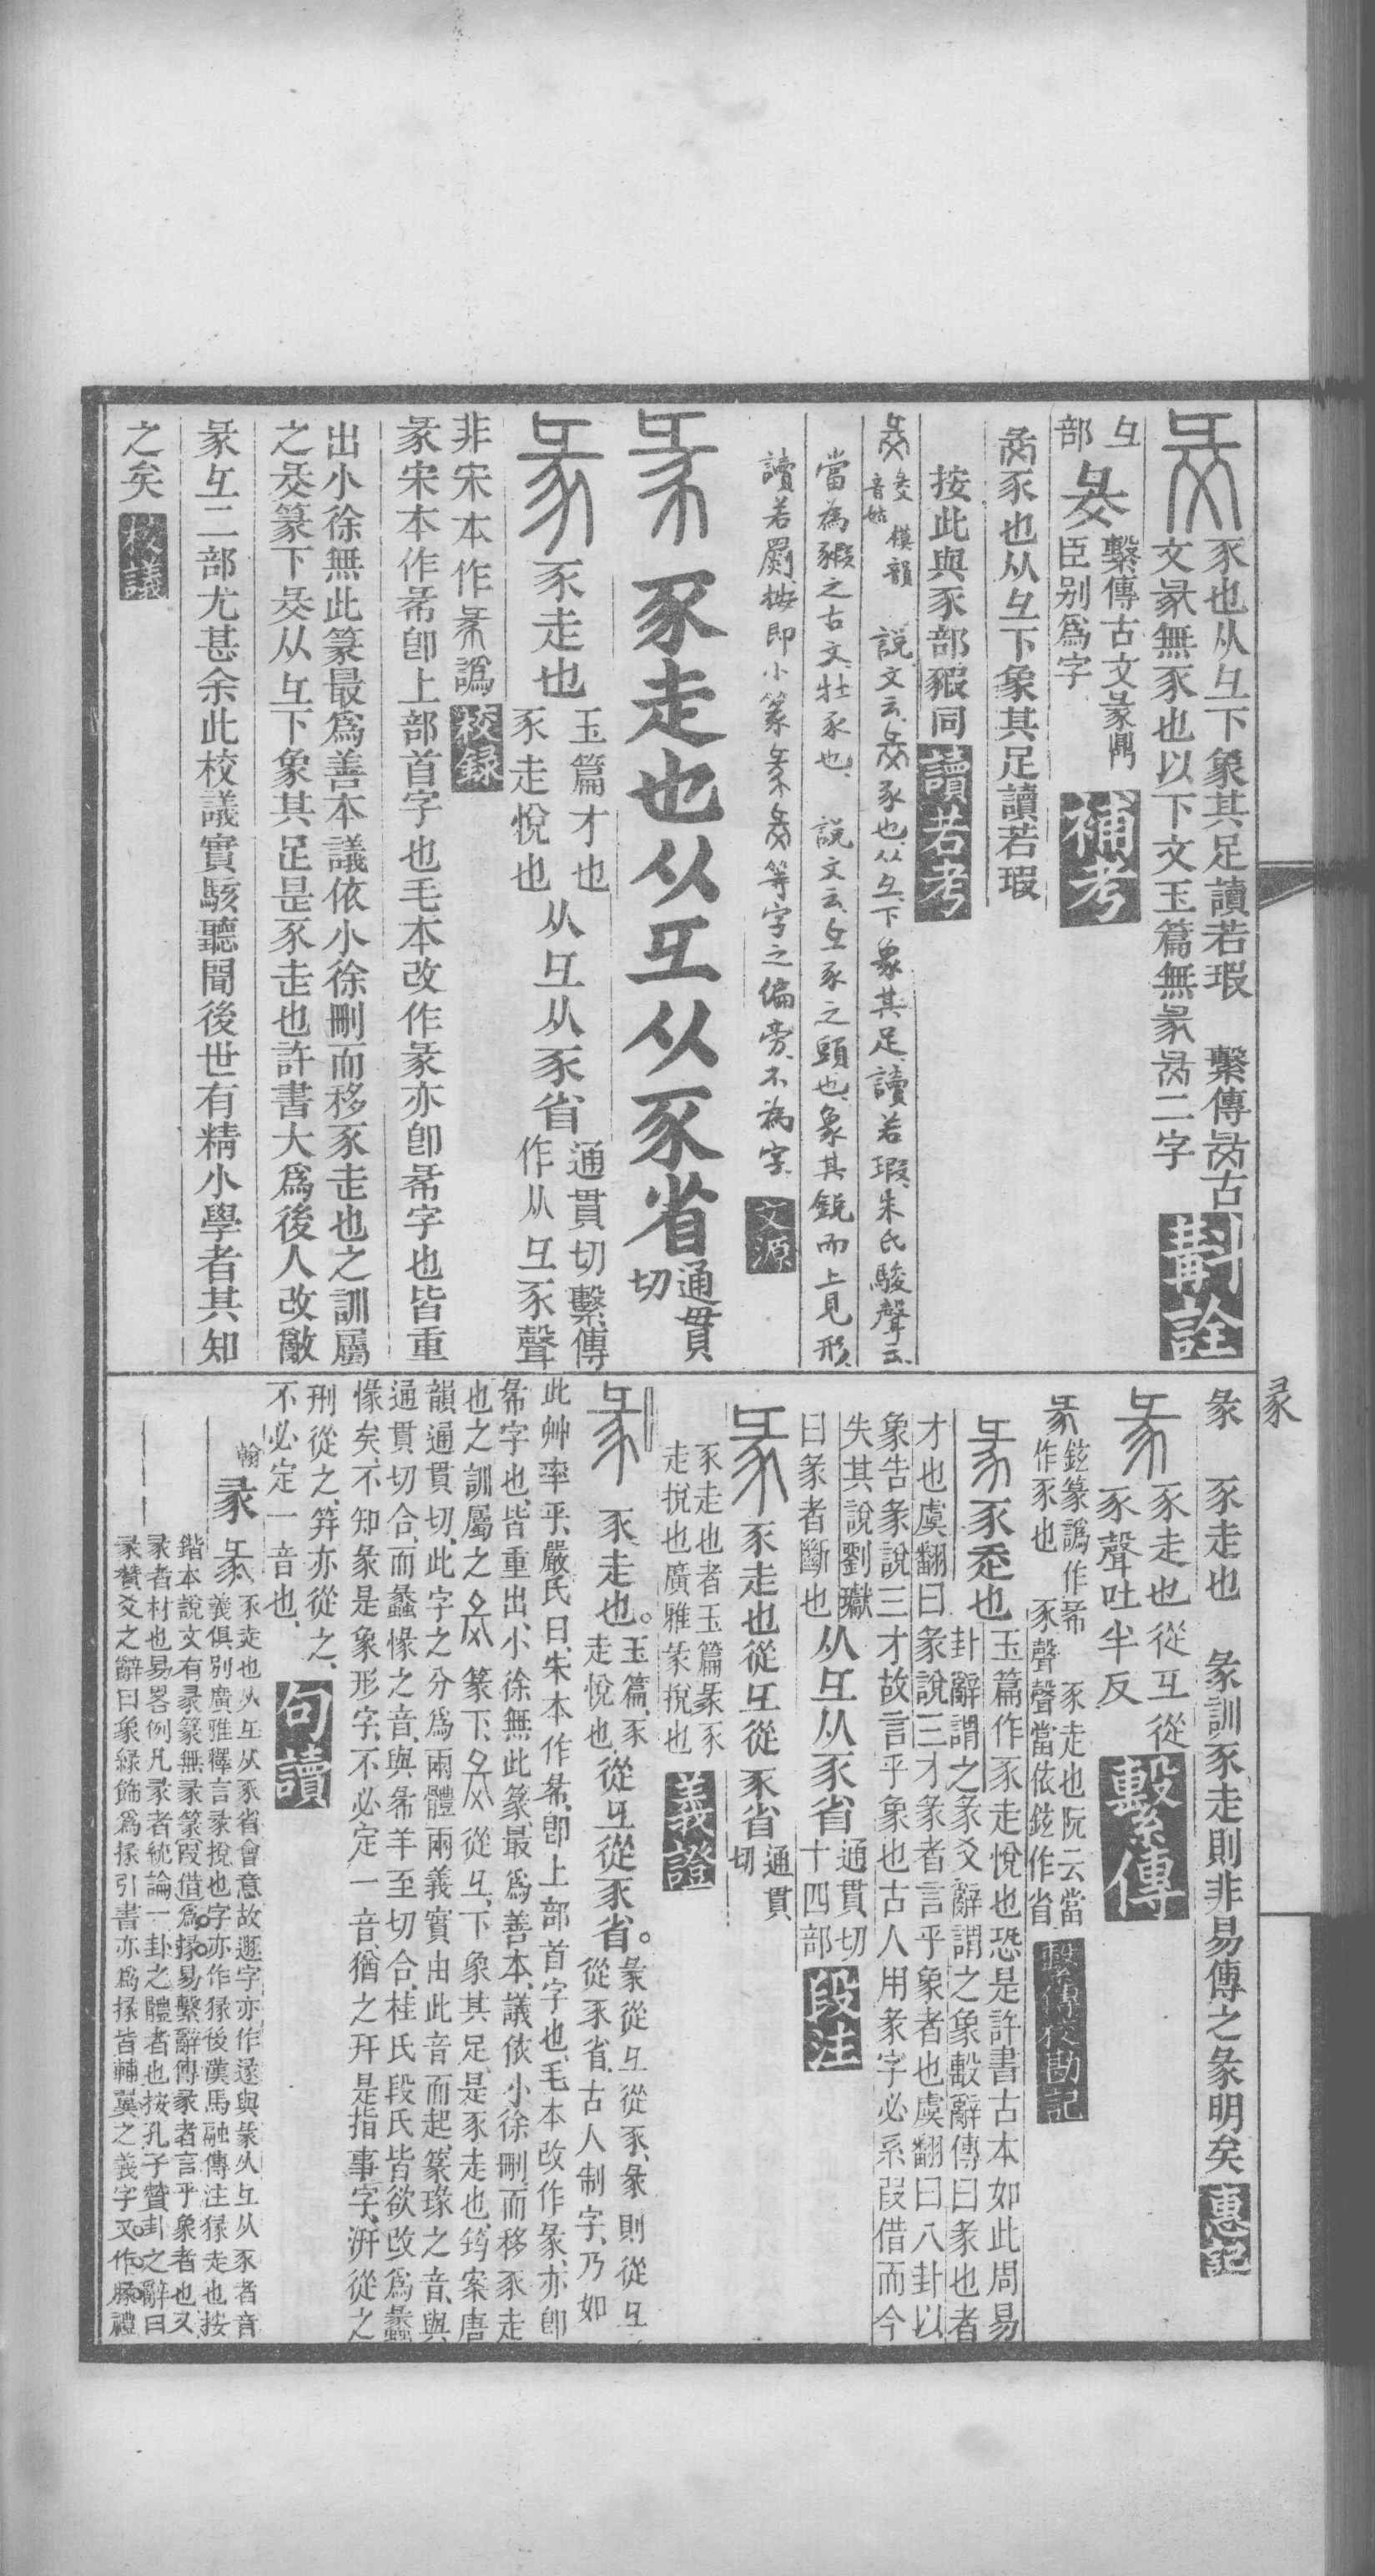 彖
豕也从彑下象其足讀若瑕　繫傳古
文彖無豕也以下文玉篇無二字
斠詮
彑
部
繫傳古文彖鼎
臣别爲字
補考
豕也从彑下象其足讀若瑕
按此與豕部豭同
讀若考
音姑
模韻
說文云豕也从彑下象其足讀若瑕朱氏駿聲云
當為豭之古文牡豕也說文云彑豕之頭也象其銳而上見形
讀若罽按即小篆等字之偏旁不為字
文源
豕走也从彑从豕省
通貫
切
豕走也
玉篇才也
豕走悅也
从彑从豕省
通貫切繫傳
作从彑豕聲
非宋本作譌
校録
彖宋本作㣇卽上部首字也毛本改作彖亦卽㣇字也皆重
出小徐無此篆最爲善本議依小徐刪而移豕走也之訓屬
之篆下从彑下象其足是豕走也許書大爲後人改敵
彖彑二部尤甚余此校議實駭聽聞後世有精小學者其知
之矣
校議
彖
豕走也
彖訓豕走則非易傳之彖明矣
惠記
豕走也從彑從
豕聲吐半反
繫傳
鉉篆譌作㣇
作豕也
豕走也阮云當
豕聲聲當依鉉作省
繫傳校勘記
豕走也
玉篇作豕走悅也恐是許書古本如此周易
卦辭謂之彖爻辭謂之象繫辭傳曰彖也者
才也虞翻曰彖說三才彖者言乎象者也虞翻曰八卦以
象告彖說三才故言乎象也古人用彖字必系叚借而今
失其說劉瓛
曰彖者斷也
从彑从豕省
通貫切
十四部
段注
豕走也從彑從豕省
通貫
切
豕走也者玉篇彖豕
走挩也廣雅彖挩也
義證
豕走也。
玉篇豕
走悅也
從彑從豕省。
彖從彑從豕、彖則從彑
從豕省、古人制字、乃如
此艸率乎、嚴氏曰、朱本作㣇、卽上部首字也、毛本改作彖、亦卽
㣇字也、皆重出、小徐無此篆、最爲善本、議依小徐刪、而移豕走
也之訓屬之篆下、從彑、下象其足、是豕走也、筠案唐
韻通貫切、此字之分爲兩體兩義、實由此音而起、篆瑑之音、與
通貫切合、而蠡㥟之音、與㣇羊至切合、桂氏段氏皆欲改爲蠡
㥟矣、不知彖是象形字、不必定一音、猶之幵是指事字、汧從之
刑從之、筓亦從之、
不必定一音也、
句讀
翰
彖
豕走也从彑从豕省會意故遯字亦作遂與彖从彑从豕者音
義俱別廣雅釋言彖挩也字亦作猭後漢馬融傳注猭走也按
鍇本說文有彖篆無彖篆叚借爲掾易繫辭傳彖者言乎象者也又
彖者材也易畧例凡彖者統論一卦之體者也按孔子贊卦之辭曰
彖贊爻之辭曰象緣飾爲掾引書亦爲掾皆輔翼之義字又作腞禮